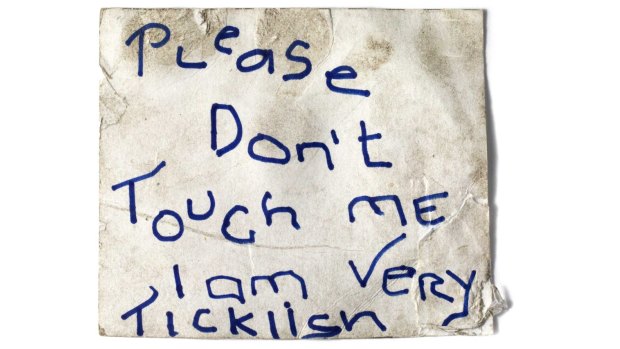 Please
Don't
Touch me
I am very
Ticklish